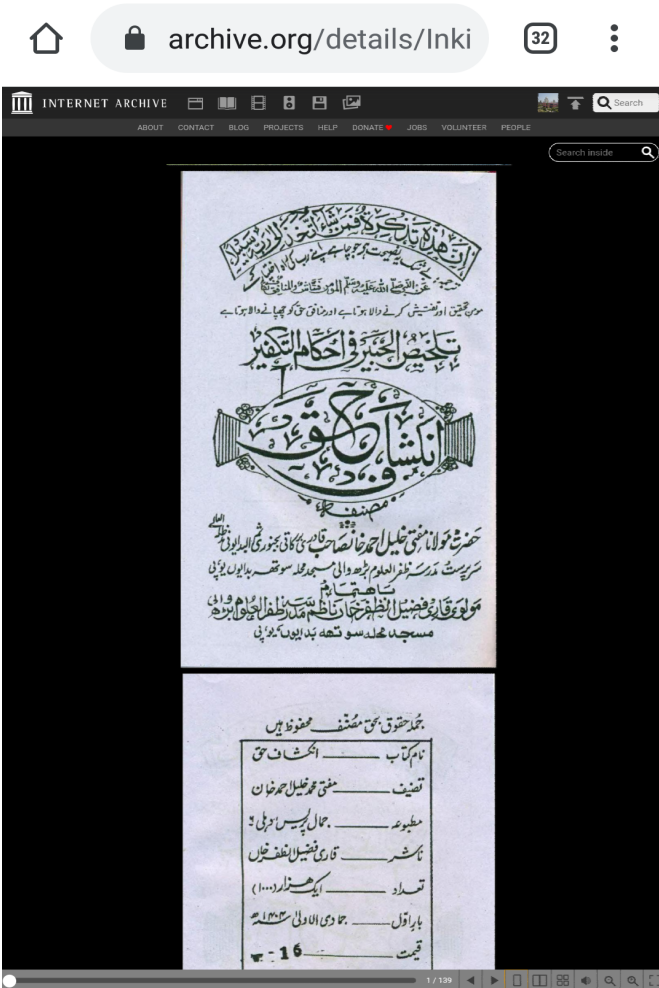 archive.org/details/Inki
32
INTERNET ARCHIVE
Search
ABOUT CONTACT BLOG PROJECTS HELP DONATE JOBS VOLUNTEER PEOPLE
Search inside
ان هذه تذكرة فمن شاء اتخذ الى ربه سبيلا
بے شک یہ نصیحت ہے جو چاہے اپنے رب کی راہ اختیار کرے
عن النبي صلى الله عليه وسلم المؤمن فتاش والمنافق
مومن تحقیق اور تفتیش کرنے والا ہوتا ہے اور منافق حق کو چھپانے والا ہوتا ہے
تلخیص الحبیر فی احکام التکفیر
انکشاف حق
مصنفہ
حضرت مولانا مفتی خلیل احمد خانصاحب قادری برکاتی بجنوری ثم البدایونی مدظلہ العالی
سرپرست مدرسہ ظفر العلوم بڑھ والی مسجد محلہ سوتھہ بدایوں یوپی
باہتمام
مولوی قاری فضیل الظفر خان ناظم مدرسہ ظفر العلوم بڑھ والی
مسجد محلہ سوتھہ بدایوں یوپی
جملہ حقوق بحق مصنف محفوظ ہیں
نام کتاب ——— انکشاف حق
تصنیف ——— مفتی محمد خلیل احمد خان
مطبوعہ ——— جمال پریس دہلی ۶
ناشر ——— قاری فضیل الظفر خاں
تعداد ——— ایک ہزار (۱۰۰۰)
بار اول ——— جمادی الاولیٰ ۱۴۰۴ھ
قیمت ——— 16
1 / 139